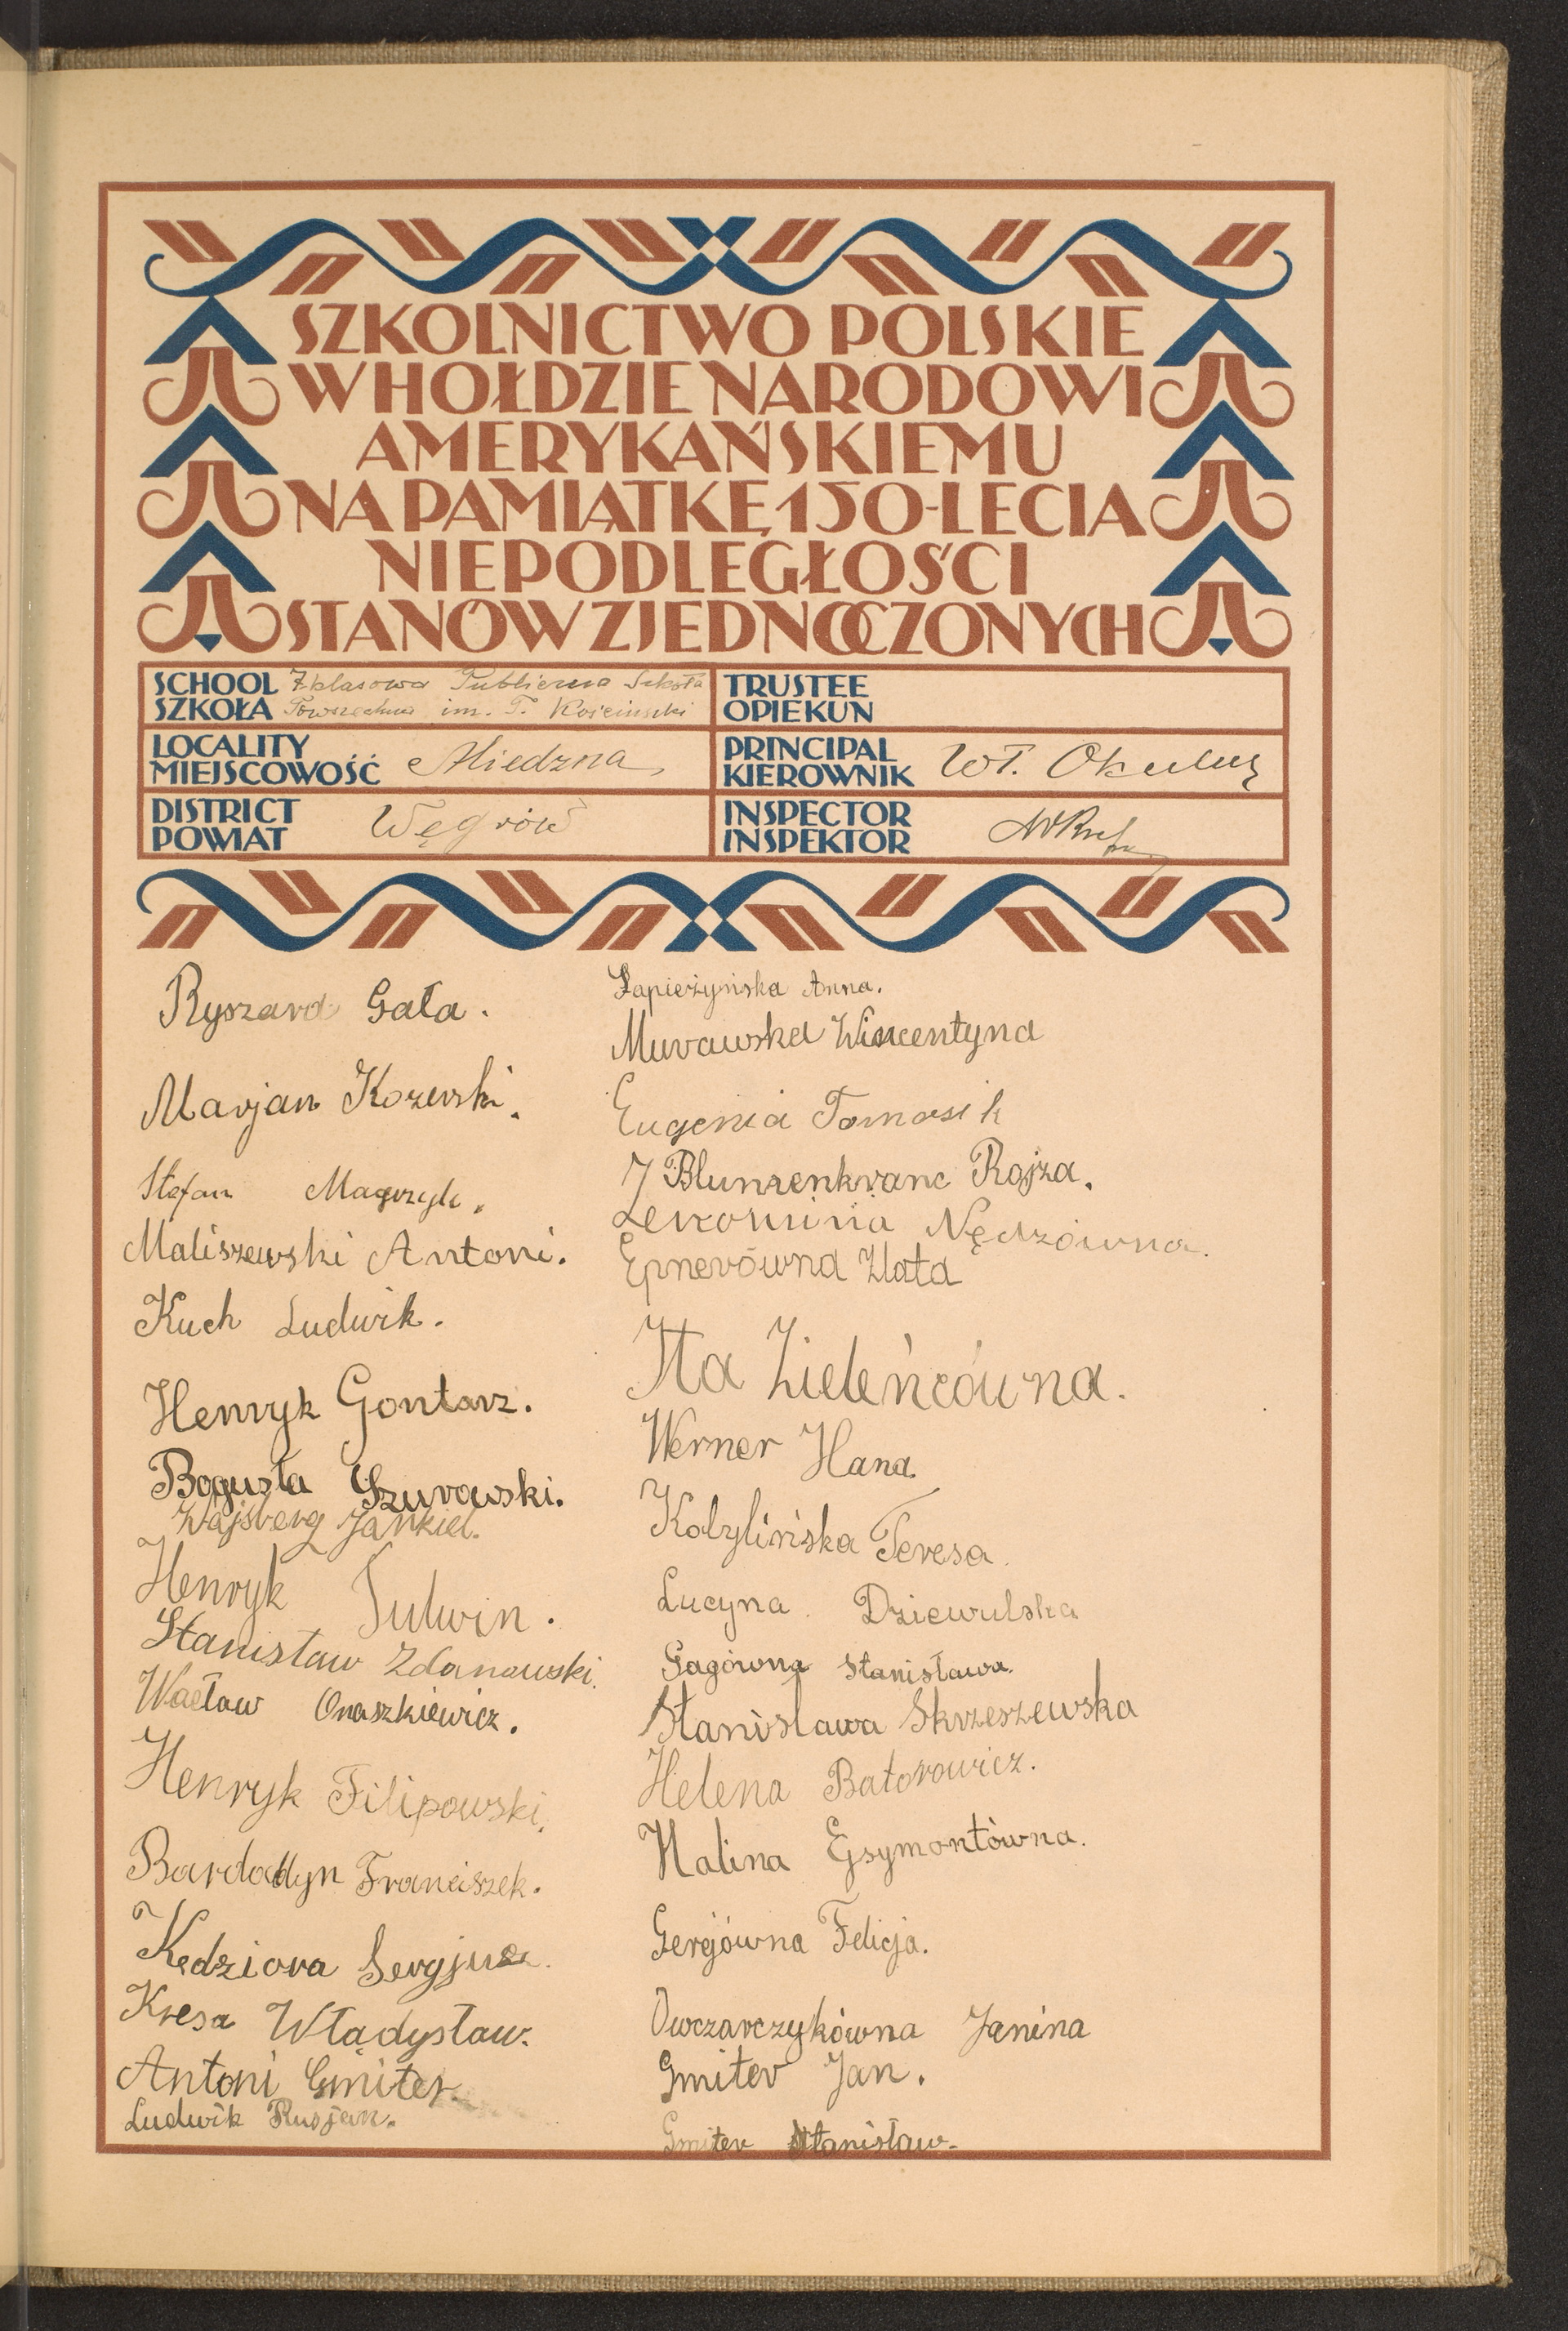 SZKOLNICTWO POLSKIE
W HOŁDZIE NARODOWI
AMERYKAŃSKIEMU
NA PAMIĄTKĘ 150-LECIA
NIEPODLEGŁOŚCI
STANÓW ZJEDNOCZONYCH
SCHOOL 7 klasowa Publiczna Szkoła
SZKOŁA Powszechna im. T. Kościuszki
LOCALITY
MIEJSCOWOŚĆ Miedzna
DISTRICT
POWIAT Węgrów
TRUSTEE
OPIEKUN
PRINCIPAL
KIEROWNIK Wł. Okulus
INSPECTOR
INSPEKTOR
Ryszard Gała.
Marjan Kozerski.
Stefan Magrzyk.
Maliszewski Antoni.
Kuch Ludwik.
Henryk Gontarz.
Bogusła Szurowski.
Wajsberg Jankiel.
Henryk Tulwin.
Stanisław Zdanowski.
Wacław Onaszkiewicz.
Henryk Filipowski.
Bardadyn Franciszek.
Kędziora Sergjusz.
Kresa Władysław.
Antoni Gmiter
Ludwik Rusjan.
Łapieżyńska Anna.
Murawska Wincentyna
Eugenia Tomasik
Blumzenkranc Rojza.
Nędzówna.
Epnerówna Złata
Ita Zieleńcówna.
Werner Hana
Kobylińska Teresa.
Lucyna Dziewulska
Gagówna Stanisława.
Stanisława Skrzeszewska
Helena Batorowicz.
Halina Egsymontówna.
Gerejówna Felicja.
Owczarczykówna Janina
Gmiter Jan.
Gmiter Stanisław.